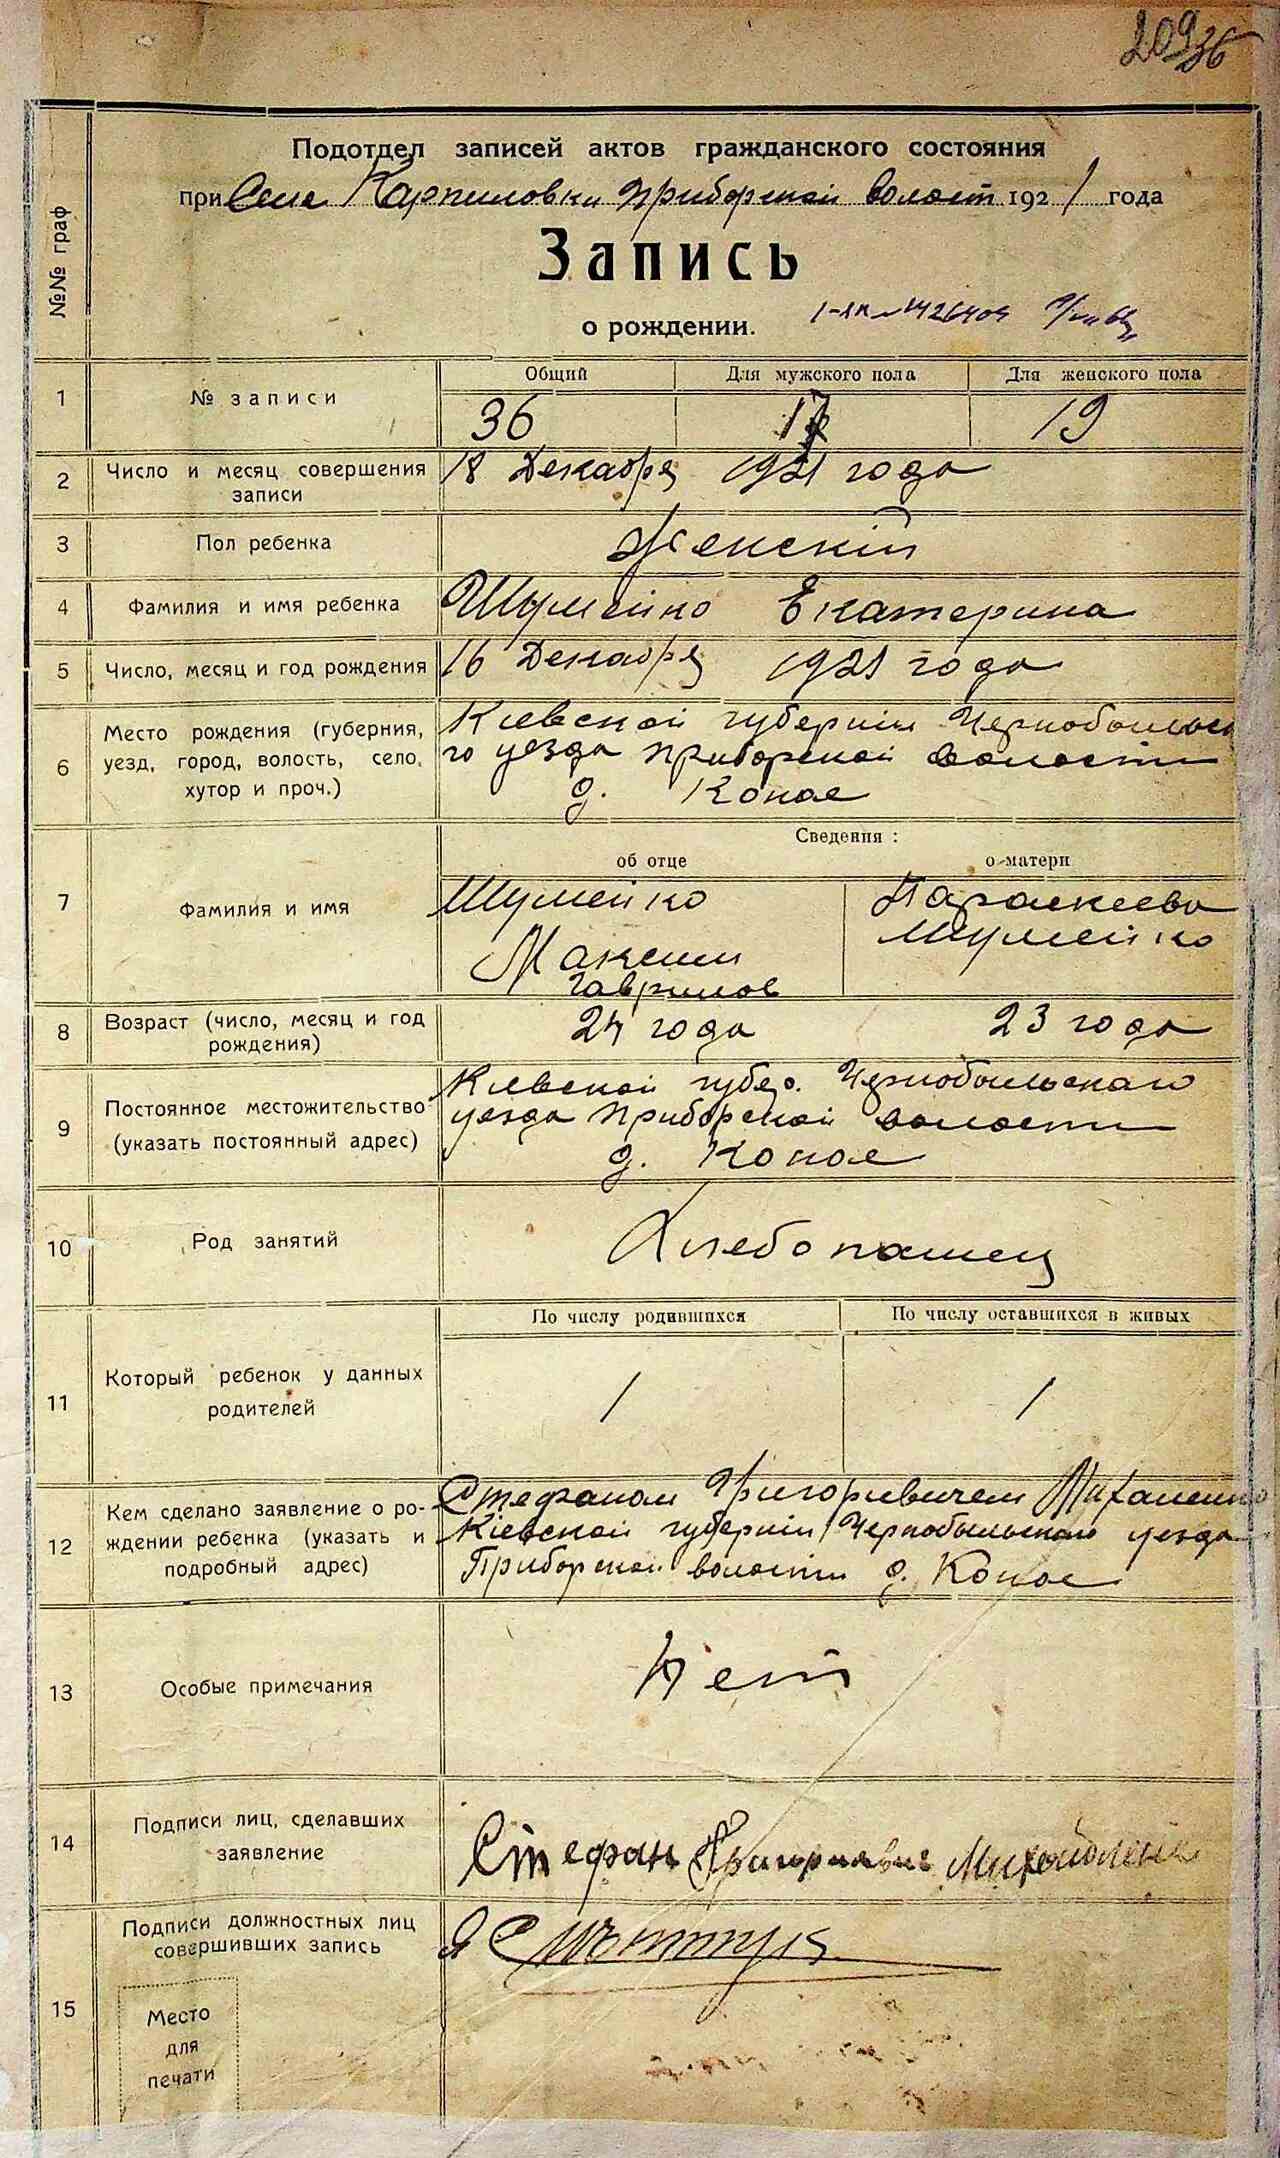 209 36
Подотдел записей актов гражданского состояния
при Селе Карпиловки Приборской волост 1921 года
№№ граф
Запись
о рождении.
Общий Для мужского пола Для женского пола
1 № записи 36 17 19
2 Число и месяц совершения записи 18 Декабря 1921 года
3 Пол ребенка Женскій
4 Фамилия и имя ребенка Шумейко Екатерина
5 Число, месяц и год рождения 16 Декабря 1921 года
6 Место рождения (губерния, уезд, город, волость, село, хутор и проч.)
Кіевской губерніи Чернобыльско
го уезда Приборской волости
д. Копае
Сведения:
об отце о матери
7 Фамилия и имя
Шумейко Параскева
Максим Шумейко
Гаврилов
8 Возраст (число, месяц и год рождения) 24 года 23 года
9 Постоянное местожительство (указать постоянный адрес)
Киевской губер. Чернобыльскаго
уезда Приборской волости
д. Копае
10 Род занятий Хлебопашец
По числу родившихся По числу оставшихся в живых
11 Который ребенок у данных родителей 1 1
12 Кем сделано заявление о рождении ребенка (указать и подробный адрес)
Стефаном Григориевичем
Кіевской губерніи Чернобыльского уезда
Приборской волости д. Копае
13 Особые примечания Нет
14 Подписи лиц, сделавших заявление
Стефан
15 Подписи должностных лиц совершивших запись
Место
для
печати